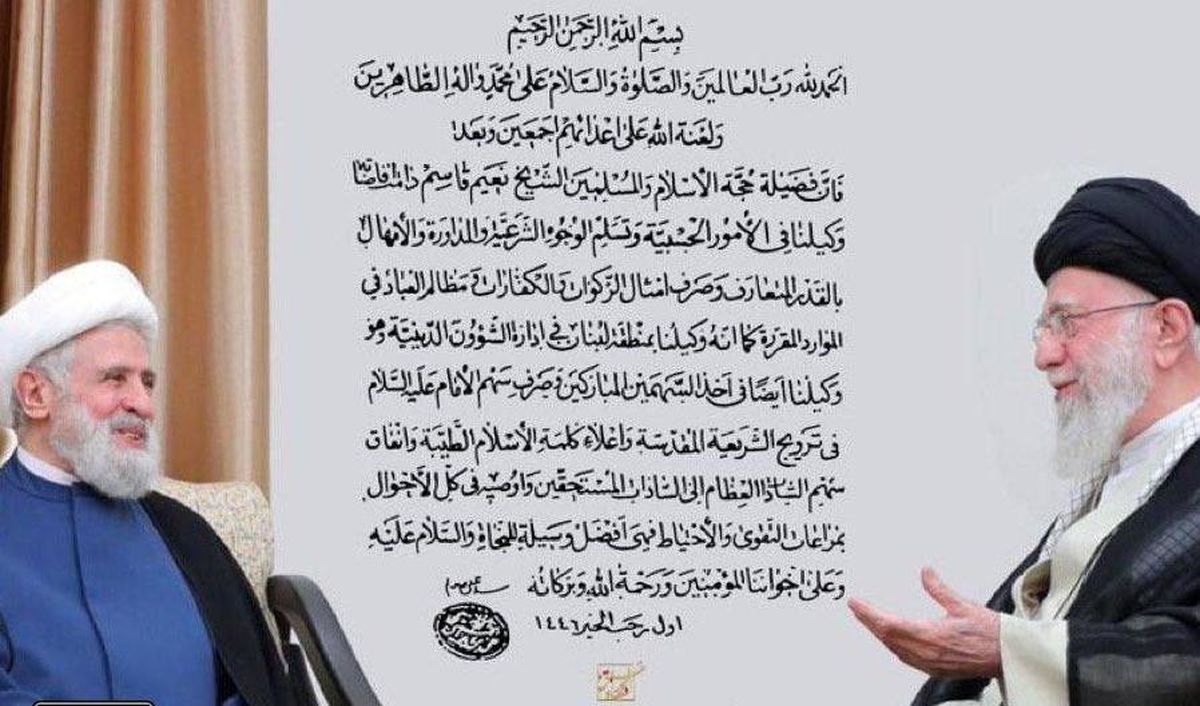 بِسْمِ اللهِ الرَّحْمنِ الرَّحيمِ
الحمدلله رَبّ العالمين وَالصَّلوةُ وَالسَّلامُ عَلى مُحَمَّدٍ وَالِهِ الطَّاهِرينَ
وَلَعْنَة الله عَلى اعْدائهِم اجْمَعينَ وَبَعد
فَانَّ فَضيلة حُجَّة الاسْلام وَالمُسْلِمينَ الشَّيخ نعيم قاسِم دامَت افاضاته
وَكيلنا فى الأمُور الحسْبِيَّة وَتَسَلّم الوجُوهِ الشَّرعيَّة وَالمداورة وَالأمهال
بالقَدْر المتعارف وَصَرف امثال الزَّكوات وَالكفّارات وَ مَظالم العباد فى
الموارد المقرّرة كما انّهُ وَكيلُنا بمنطقة لُبنان فى ادارة الشّؤُون الدّينيّة وَهُوَ
وَكيلُنا ايضًا فى اخذ السَّهمَين المُباركين وَ صَرف سَهم الامَام عَليه السَّلام
فى تَرويج الشَّريعة المقدّسة وَ اعْلاءِ كلمة الاسْلام الطيّبة وَانفاق
سَهم السّادة العِظام الى السّادات المُسْتَحقّين وَاوُصيه فى كلّ الأحْوال
بمراعات التَّقوى وَالأحتياط فهى أفْضَل وَسيلة للنجاة وَالسَّلام عَلَيْهِ
وَعَلى اخْواننا المؤمِنِينَ وَرَحمَة الله وَبَرَكاتُه
اول رجب الخير ١٤٤٦